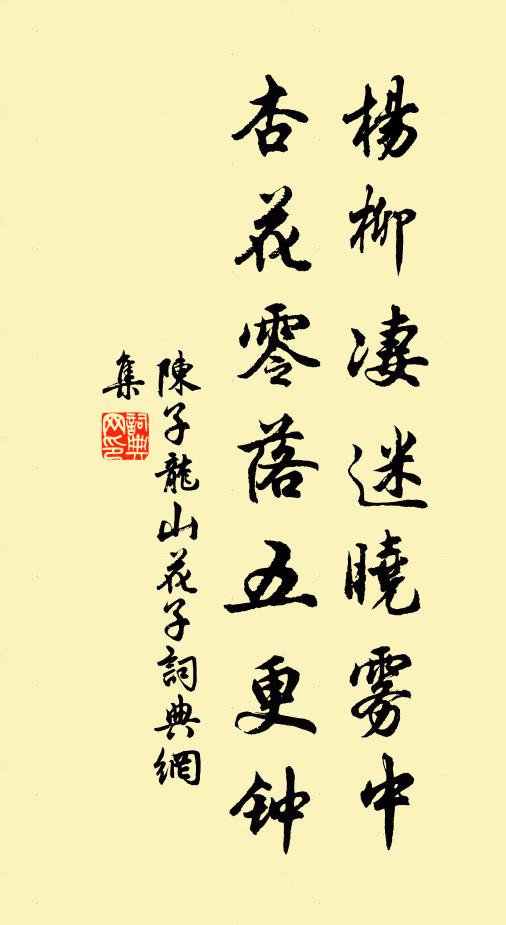 楊柳凄迷曉雾中
杏花零落五更钟
陳子龍山花子詞典網
集
詞典网印